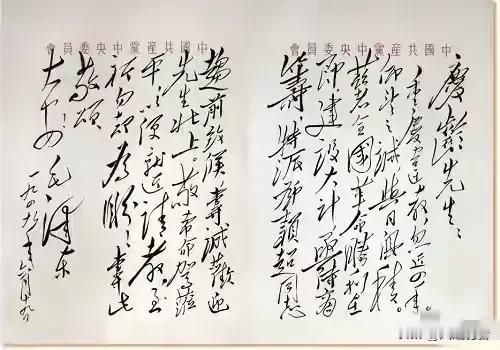 中國共產黨中央委員會
慶齡先生:
重慶違教,忽近四年。
仰望之誠,與日俱積。
茲者全國革命勝利在
即,建設大計,亟待商
籌,特派鄧穎超同志
中國共產黨中央委員會
趨前致候,專誠歡迎
先生北上。敬希命駕蒞
平,以便就近請教,至
祈勿卻為盼!專此
敬頌
大安!
毛澤東
一九四九年六月十九日